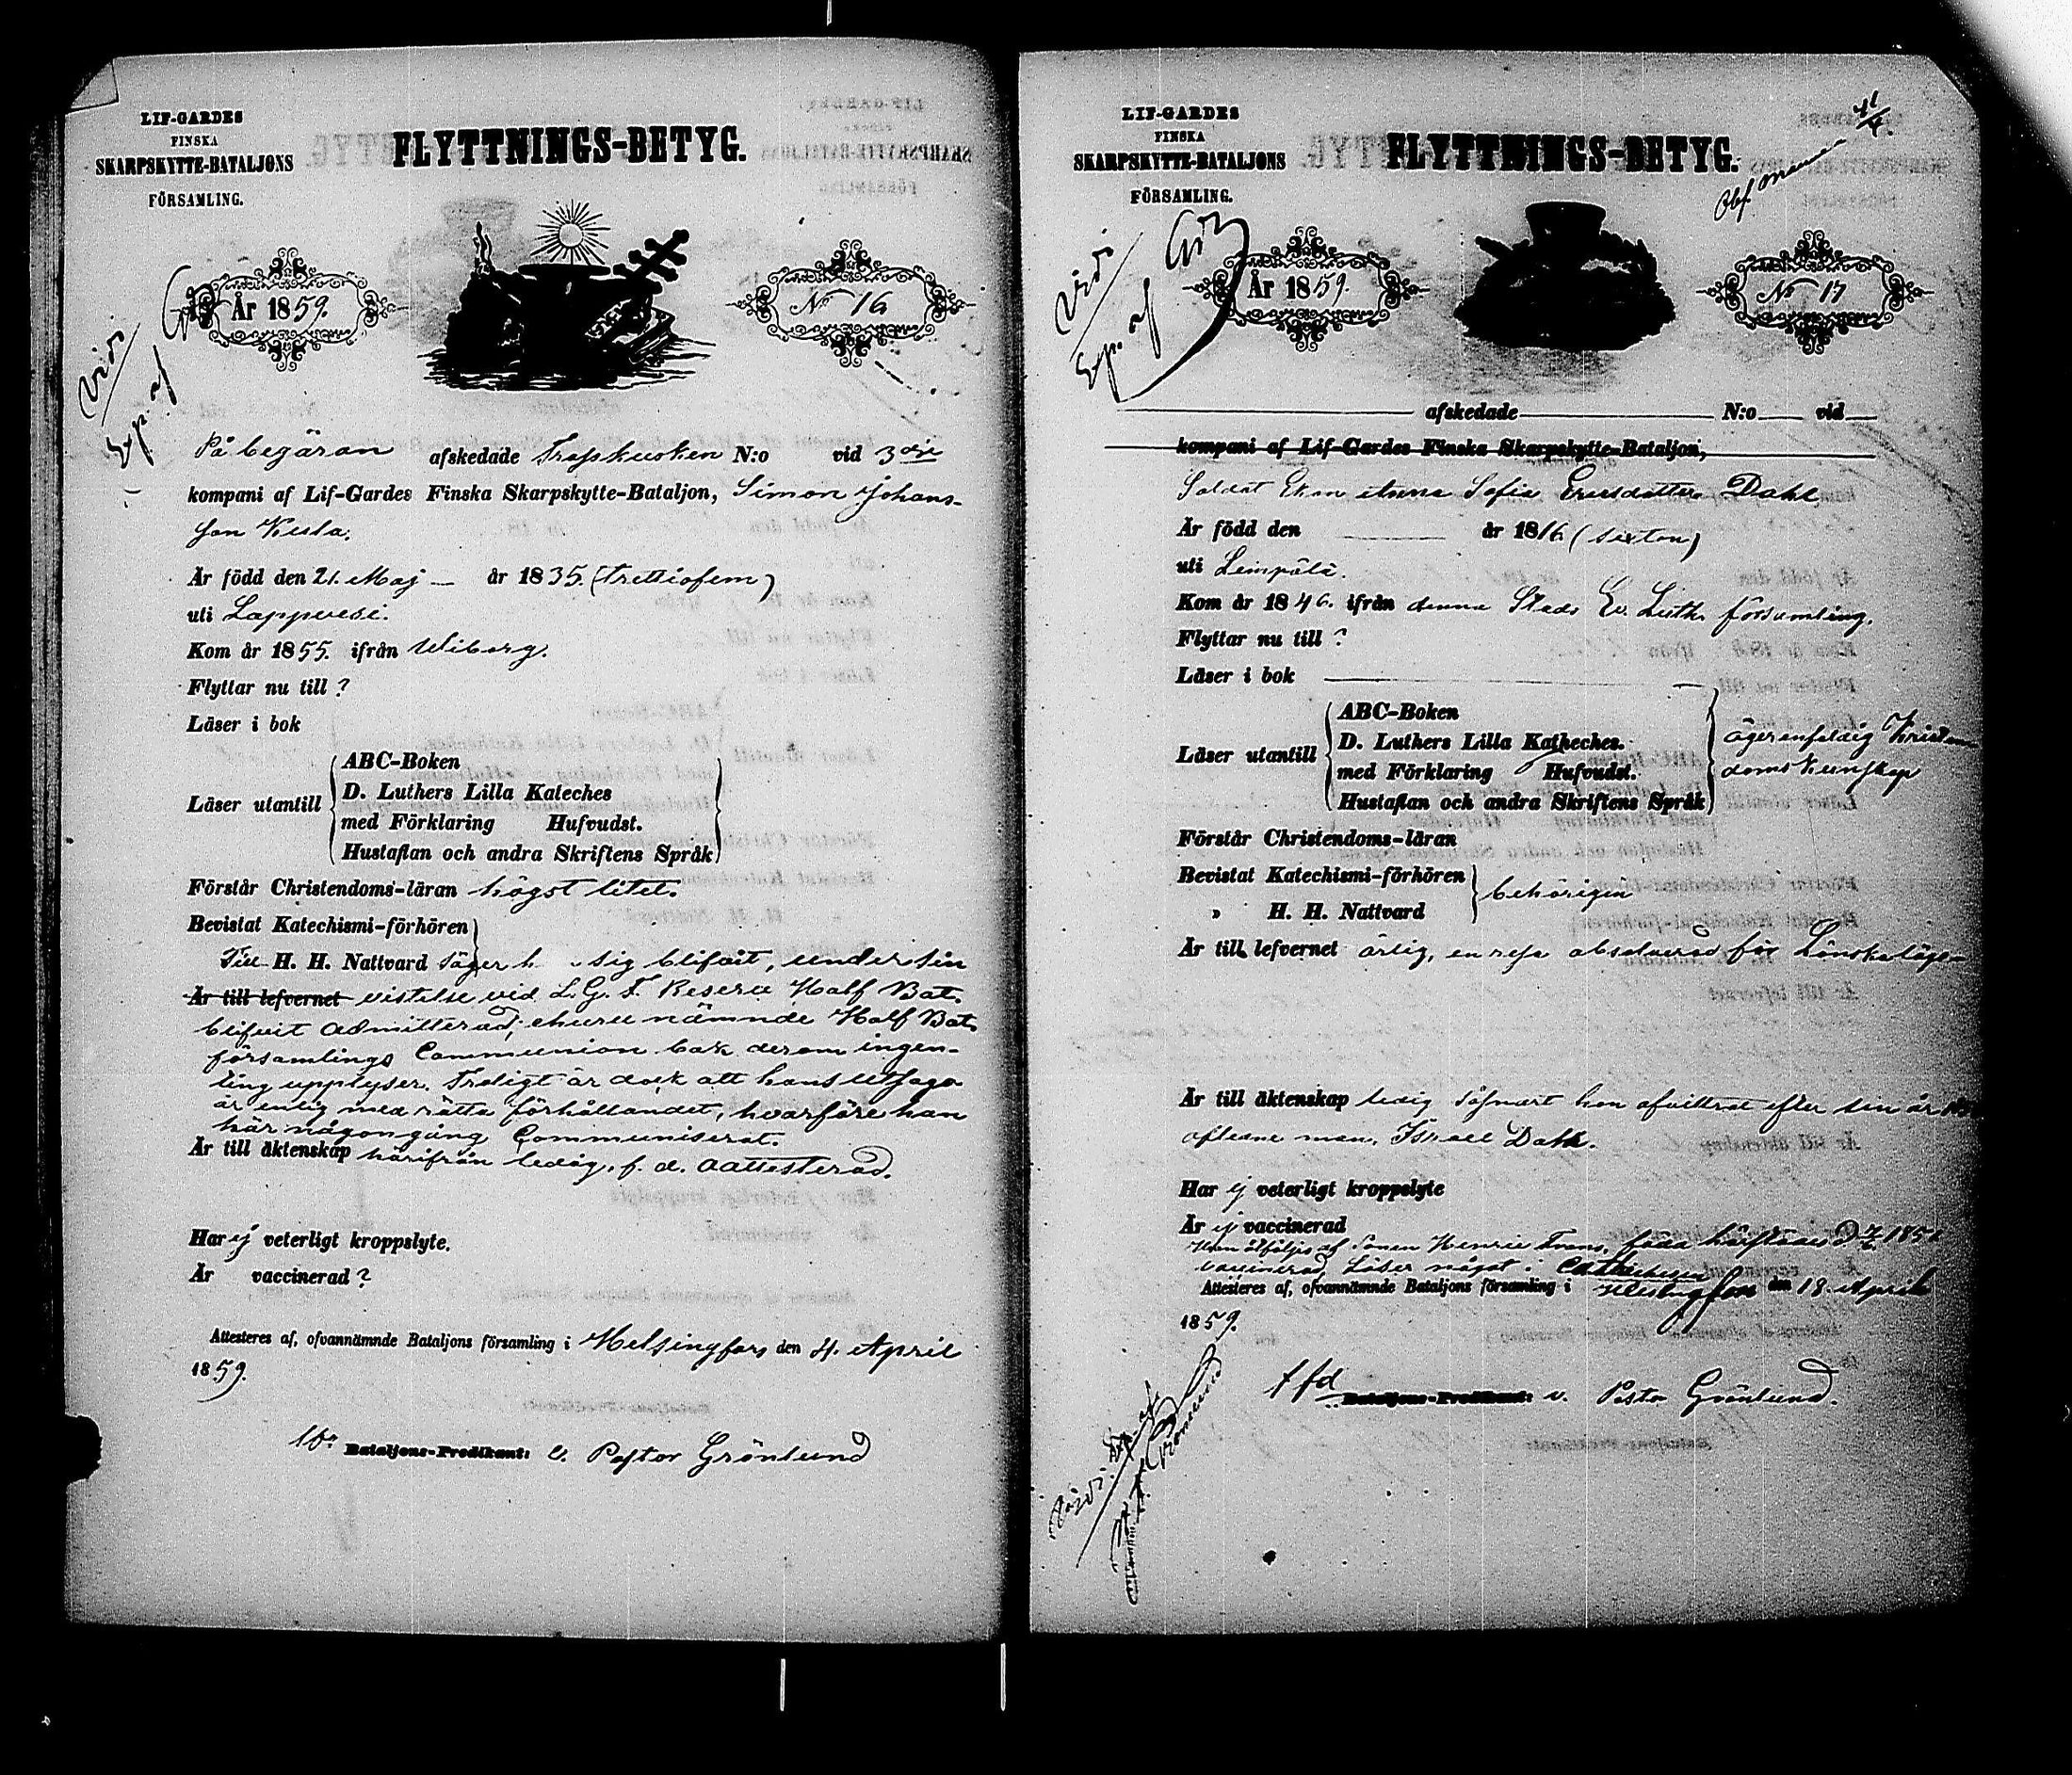 LIF-GARDES
FINSKA
SKARPSKYTTE-BATALJONS
FÖRSAMLING.
FLYTTNINGS-BETYG.
År 1859.
No 16
Vidi
Exp. af
På begäran afskedade Trosskusken N:o vid 3die
kompani af Lif-Gardes Finska Skarpskytte-Bataljon, Simon Johans-
son Kusla.
Är född den 21. Maj — år 1835. (trettiofem)
uti Lappvesi.
Kom år 1855. ifrån Wiborg.
Flyttar nu till ?
Läser i bok
Läser utantill
ABC-Boken
D. Luthers Lilla Kateches
med Förklaring Hufvudst.
Hustaflan och andra Skriftens Språk
Förstår Christendoms-läran högst litet.
Bevistat Katechismi-förhören
Till H. H. Nattvard säger h. sig blifvit, under sin
Är till lefvernet vistelse vid L. G. F. Reserv Half Bat.
blifvit admitterad, ehuru nämnde Half Bat.
församlings Communion bok derom ingen-
ting upplyser. Troligt är dock att hans utsago
är enlig med rätta förhållandet, hvarföre han
här någon gång Communiserat.
Är till äktenskap härifrån ledig, f. d. oattesterad.
Har ej veterligt kroppslyte.
Är vaccinerad ?
Attesteres af, ofvannämnde Bataljons församling i Helsingfors den 4. April
1859.
Bataljons-Predikant: v. Pastor Grönlund
LIF-GARDES
FINSKA
SKARPSKYTTE-BATALJONS
FÖRSAMLING.
FLYTTNINGS-BETYG.
År 1859.
No 17
Vidi
Exp. af
afskedade N:o vid
kompani af Lif-Gardes Finska Skarpskytte-Bataljon,
Soldat Enkan Anna Sofia Ericsdotter Dahl
Är född den — år 1816 (sixton)
uti Lempälä.
Kom år 1846. ifrån denna Stads Ev. Luth. församling.
Flyttar nu till ?
Läser i bok
Läser utantill
ABC-Boken
D. Luthers Lilla Katheches.
med Förklaring Hufvudst.
Hustaflan och andra Skriftens Språk
äger enfaldig Kristen
doms kunskap
Förstår Christendoms-läran
Bevistat Katechismi-förhören
" H. H. Nattvard
behörigen
Är till lefvernet ärlig, en resa absolverad för Lönskaläge
Är till äktenskap ledig såsnart hon afvittrat efter sin år
aflidne man, Israel Dahl.
Har ej veterligt kroppslyte
Är ej vaccinerad
Hon åtföljes af Sonen Henric Frans, född härstädes d.
vaccinerad Läser något i Cathechesen
Attesteres af, ofvannämnde Bataljons församling i Helsingfors den 18. April
1859.
Bataljons-Predikant: v. Pastor Grönlund.